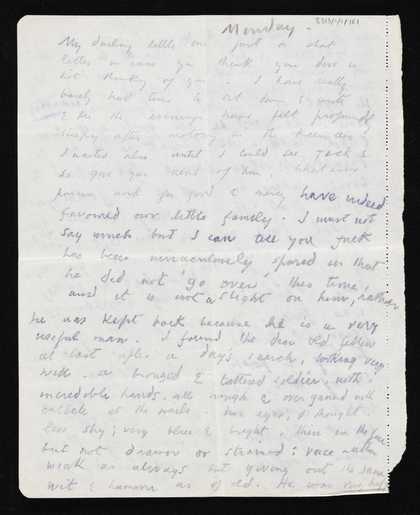 Monday.
My darling little one just a short
letter in case you think your dear is
not thinking of you. I have really
barely had time to sit down & write
& the evenings have felt profoundly
sleepy after motoring in the
I wanted also until I could see Jack &
so give you news of him. What ever
and for good & mercy have indeed
favoured our little family. I must not
say much but I can tell you Jack
has been miraculously spared in that
he did not 'go over' this time,
and it is not a slight on him, rather
he was kept back because he is a very
useful man. I found the dear old fellow
at last after a days search, looking very
well. a bronzed & tattered soldier, with
incredible hands, all rough & over grained with
at the nails. his eyes, I thought
less shy; very blue & bright, thin in the face
but not drawn or strained: voice rather
weak as always but giving out the same
wit & humour as of old. He was very